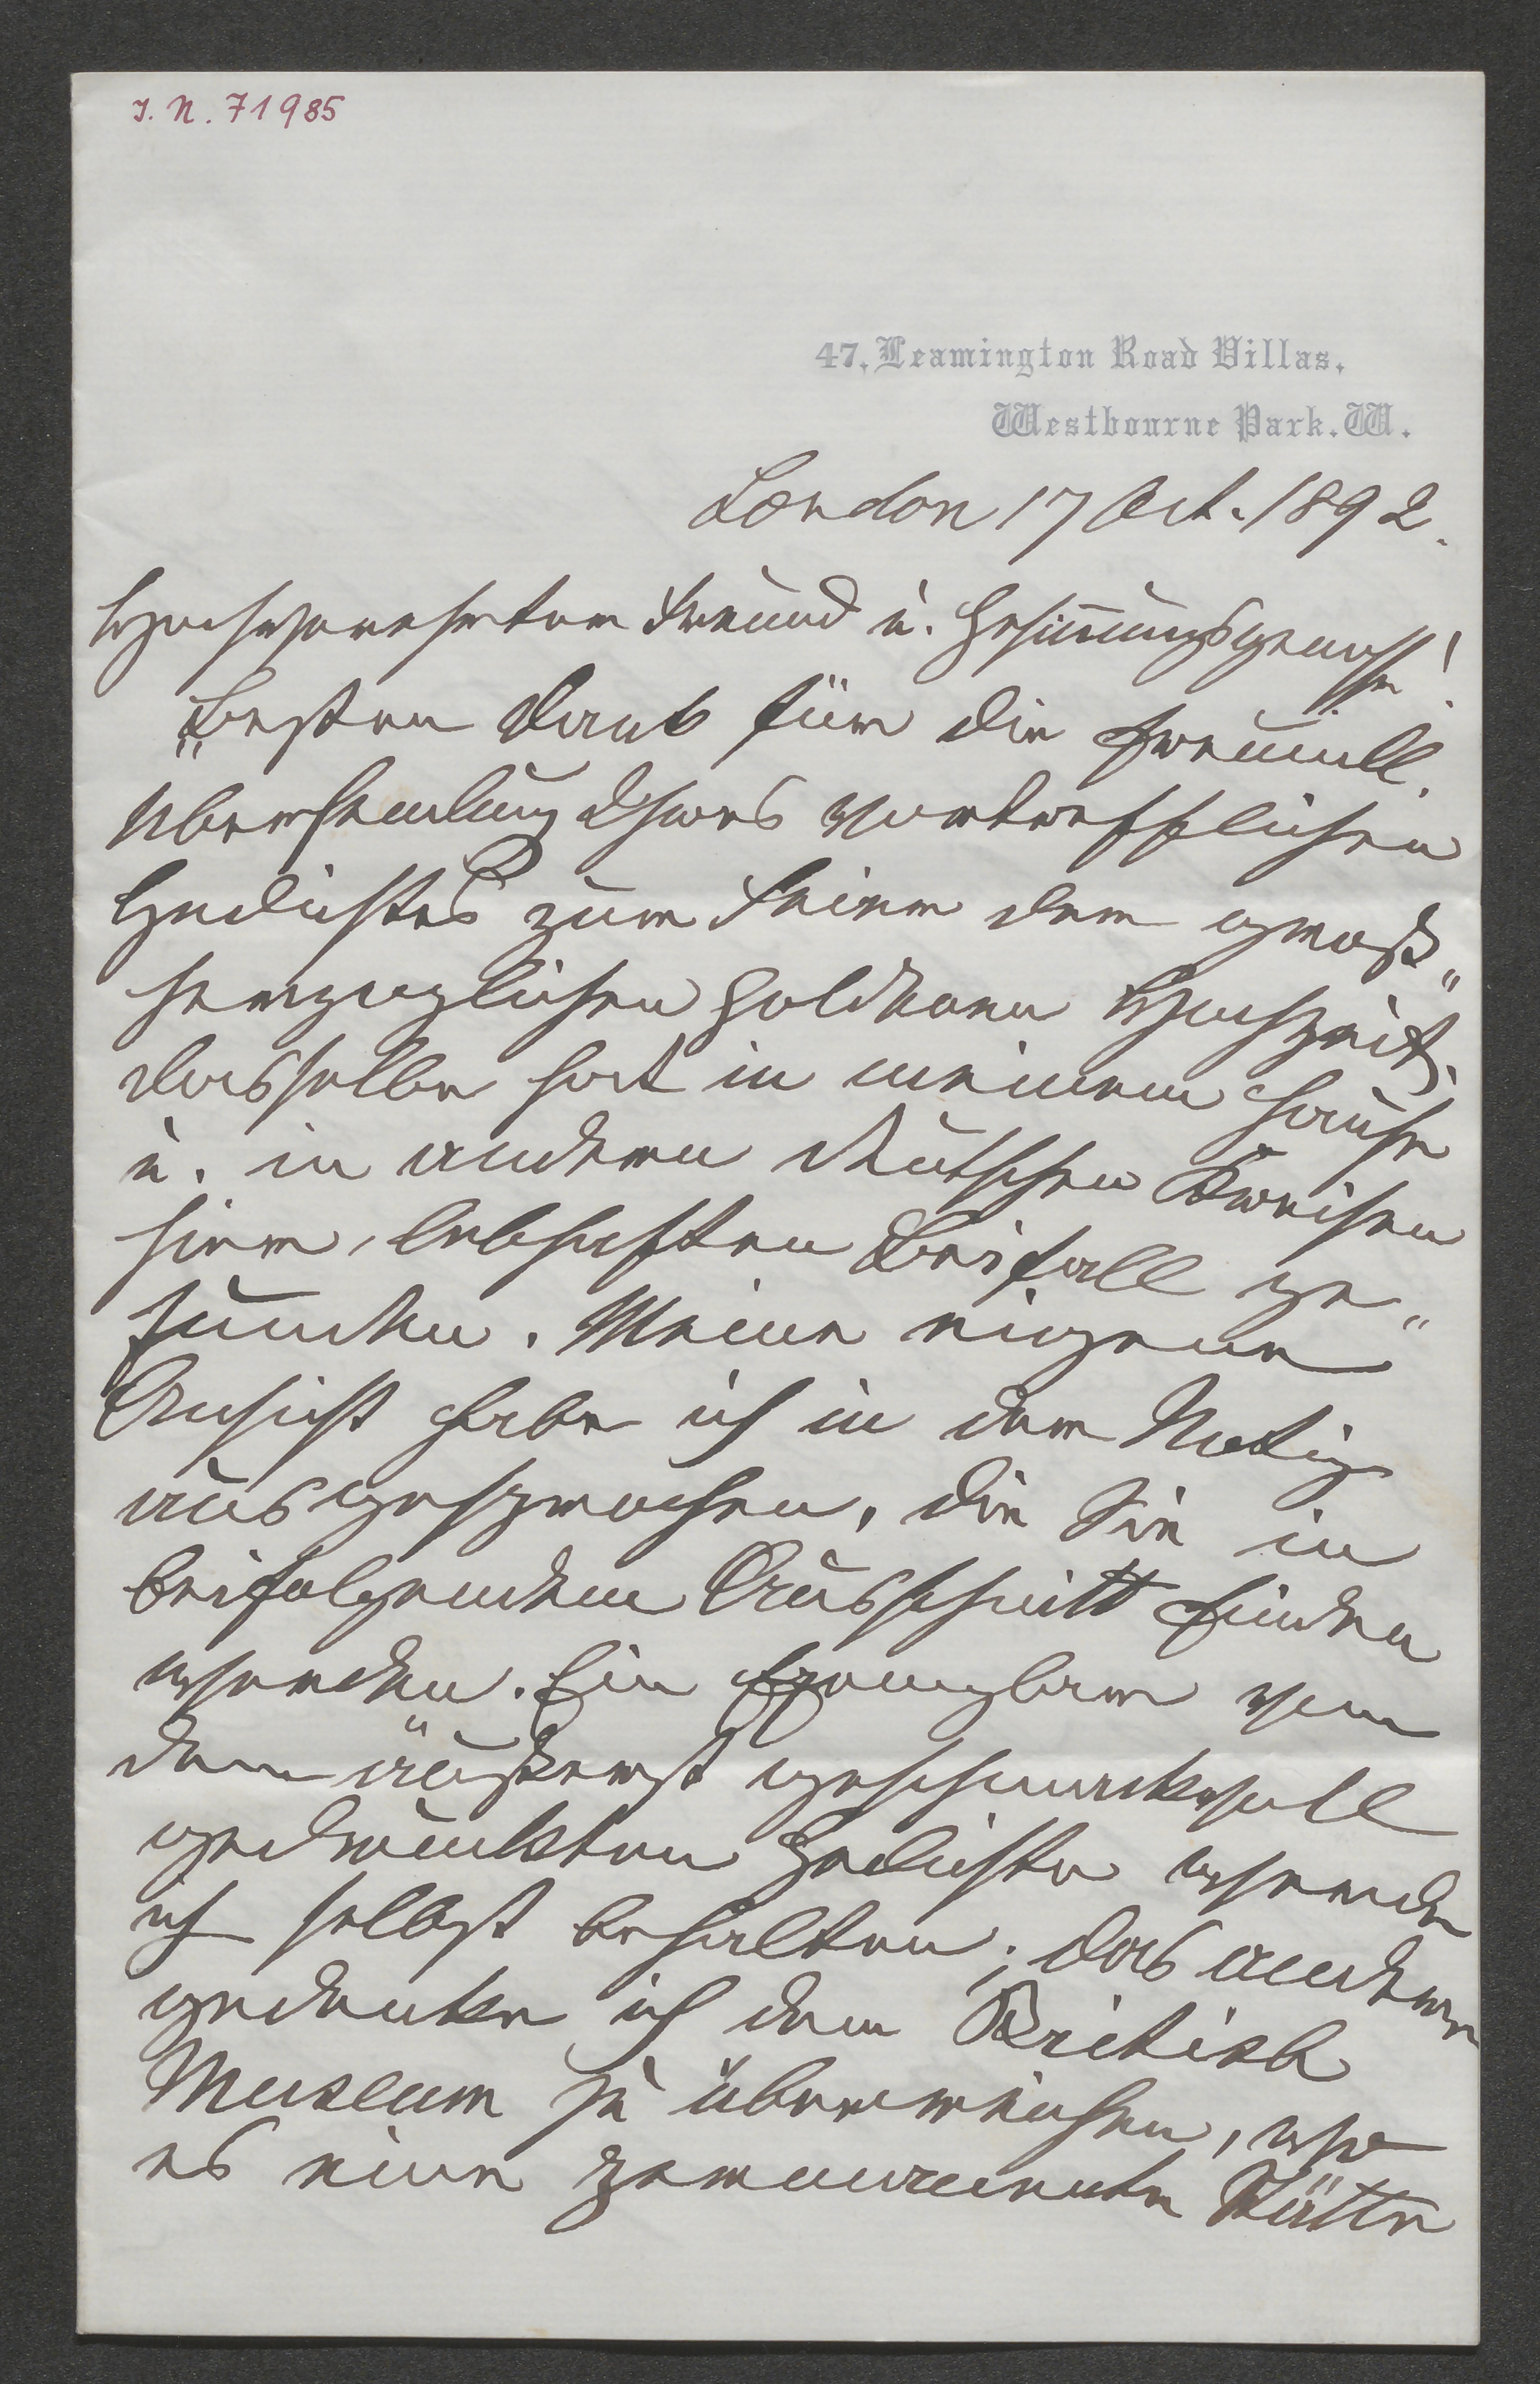 I. N. 71985
47, Leamington Road Villas,
Westbourne Park. W.
London 17 Oct. 1892.
Hochverehrter Freund u. Gesinnungsgenosse!
Besten Dank für die freundl.
Übersendung Ihres vortrefflichen
Gedichtes zur Feier der groß„
herzoglichen Goldenen Hochzeit.
Dasselbe hat in meinem Hause
u. in anderen deutschen Kreisen
hier, lebhaften Beifall ge„
funden. Meine eigene
Ansicht habe ich in der Notiz
ausgesprochen, die Sie in
beifolgendem Ausschnitt finden
werden. Ein Exemplar von
dem äußerst geschmackvoll
gedruckten Gedichte werde
ich selbst behalten; das andere
gedenke ich dem British
Museum zu überreichen, wo
es eine permanente Stätte